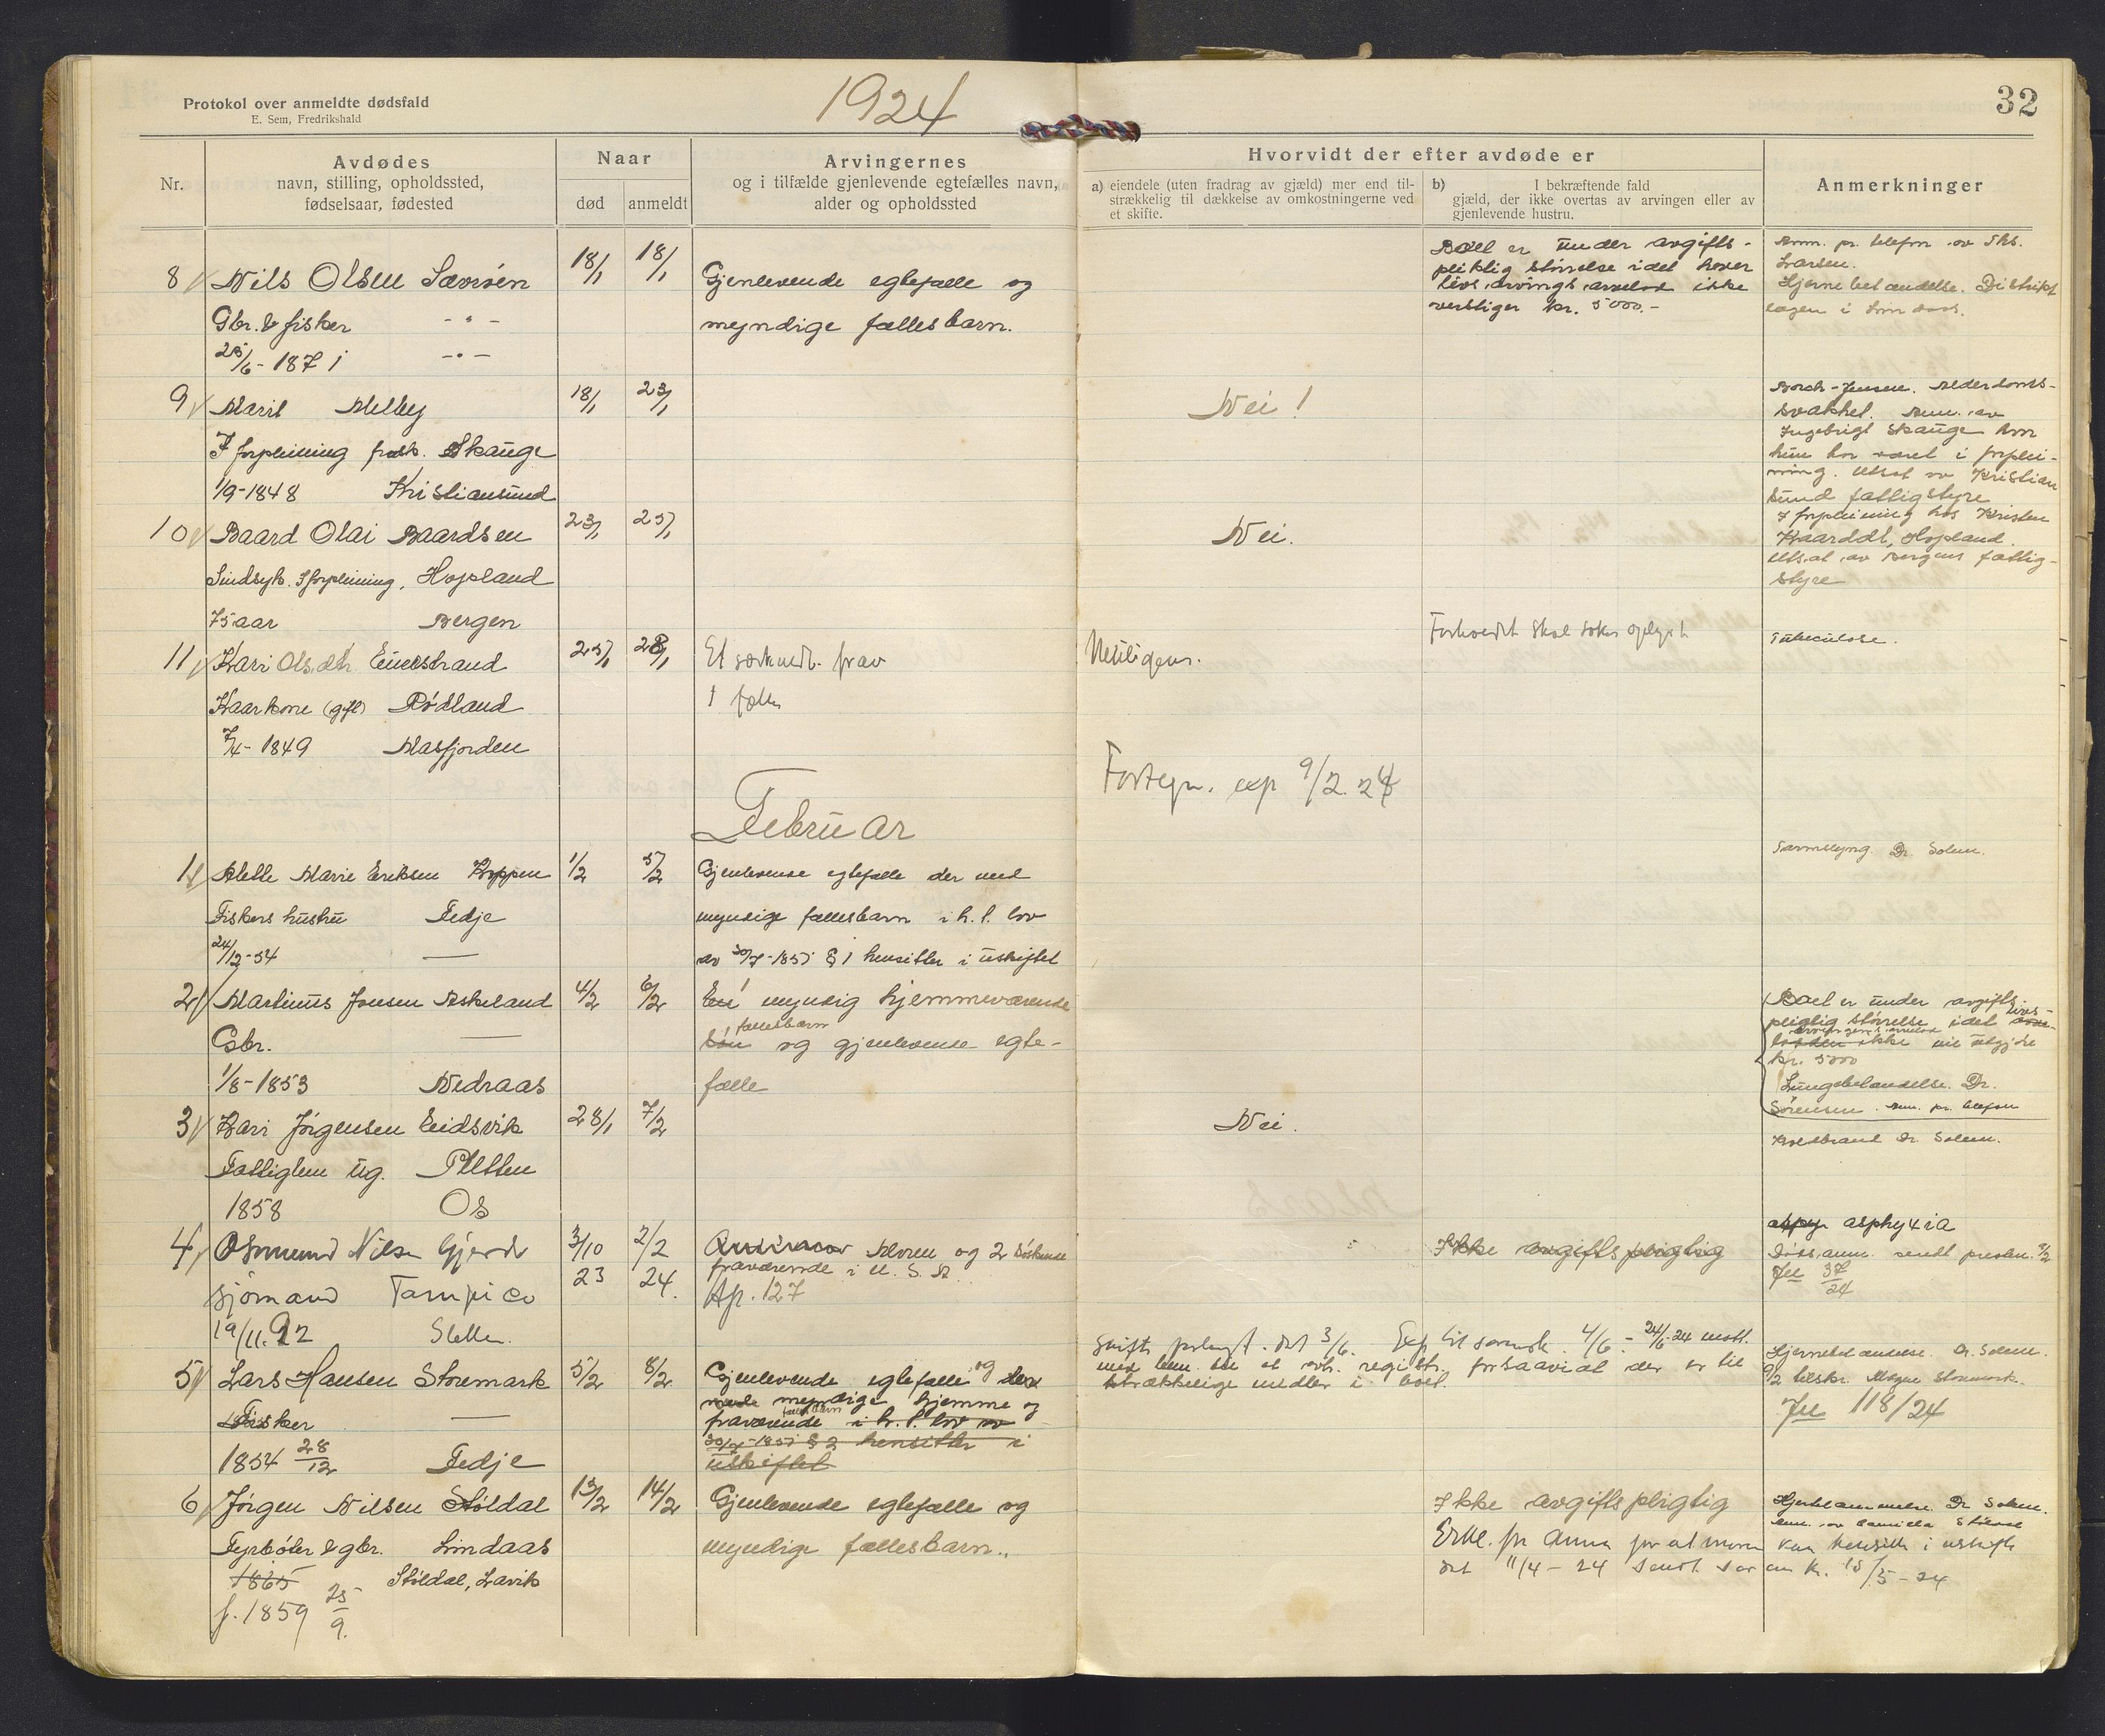 1924
32
Protokol over anmeldte dødsfald
E. Sem, Fredrikshald
Nr.
Avdødes
navn, stilling, opholdssted,
fødselsaar, fødested
Naar
død
anmeldt
Arvingernes
og i tilfælde gjenlevende egtefælles navn,
alder og opholdssted
Hvorvidt der efter avdøde er
a) eiendele (uten fradrag av gjæld) mer end til-
strækkelig til dækkelse av omkostningerne ved
et skifte.
b) I bekræftende fald
gjæld, der ikke overtas av arvingen eller av
gjenlevende hustru.
Anmerkninger
8 Nils Olsen Sævrøen
Gbr. & fisker - " -
25/6 - 1871 - " -
18/1
18/1
Gjenlevende egtefælle og
myndige fællesbarn.
Boet er under avgifts-
pliktig størrelse idet hver
livsarvings arvelod ikke
overstiger kr. 5000.-
Anm. pr. telefon av
Larsen.
Hjernebetændelse. Distrikt
lægen i Lindaas.
9 Marit Melby
I forpleining Skauge
1/9 - 1848 Kristiansund
18/1
23/1
Nei!
Borch-Jensen. Alderdoms-
svakhet. Anm. av
Ingebrigt Skauge hvor
hun har været i forplei-
ning. Utsat av Kristian
sund fattigstyre
10 Baard Olai Baardsen
Sindsyk. I forpleining, Hopland
75 aar Bergen
23/1
25/1
Nei.
I forpleining hos Kristen
Hopland.
Utsat av Bergens fattig-
styre
11 Kari Olsdtr. Einerstrand
Kaarkone (gift) Rødland
7/4 - 1849 Masfjorden
25/1
28/1
Et
1 fælles
Forhoedet skal søkes oplyst
Tuberculose.
Fortegn. exp 9/2. 24
Februar
1 Mette Marie Eriksen
Fiskers hustru Fedje
24/12 - 54 —
1/2
5/2
Gjenlevende egtefælle der med
myndige fællesbarn i h. t. lov
av 30/7 - 1851 § 1 hensitter i uskiftet
Dr. Solem.
2 Martinus Jonsen Askeland
Gbr. —
1/8 - 1853 Nedraas
4/2
6/2
En myndig hjemmeværende
fællesbarn
søn og gjenlevende egte-
fælle
Boet er under avgifts-
pligtig størrelse idet livs-
arvingens arvelod
ikke vil utgjøre
kr. 5000
Lungebetændelse. Dr.
Sørensen. Anm. pr. telefon
3 Kari Jørgensen Eidsvik
Fattiglem ug.
1858 Os
28/1
7/2
Nei.
Koldbrand Dr. Solem.
4 Osmund Nilsen Gjerde
Sjømand Tampico
19/11. 92
3/10
23
2/2
24.
Moren og 2 søskende
fraværende i U. S. A.
Ap. 127
Ikke avgiftspligtig
asphyxia
Dødsanm. sendt presten.
Jnl 37/24
5 Lars Hansen Storemark
Fisker —
1854 28/12 Fedje
5/2
8/2
Gjenlevende egtefælle og
myndige hjemme og
fællesbarn
fraværende i h. t. lov av
30/7 - 1851 § 2 hensitter i
uskiftet
Skifte forlangt. 3/6.
4/6 - 24/6-24
registr. forsaavidt der er til
strækkelige midler i boet.
Hjernebetændelse. Dr. Solem.
9/2 tilskr. Magne Storemark.
Jnl 118/24
6 Jørgen Nilsen Støldal
Fyrbøter & gbr. Lindaas
1865 Støldal, Lavik
f. 1859 25/9.
13/2
14/2
Gjenlevende egtefælle og
myndige fællesbarn.
Ikke avgiftspligtig
Erkl. fra Anna for at moren kan hensitte i uskifte
det 11/4 - 24 Sendt 15/5 - 24
Dr. Solem.